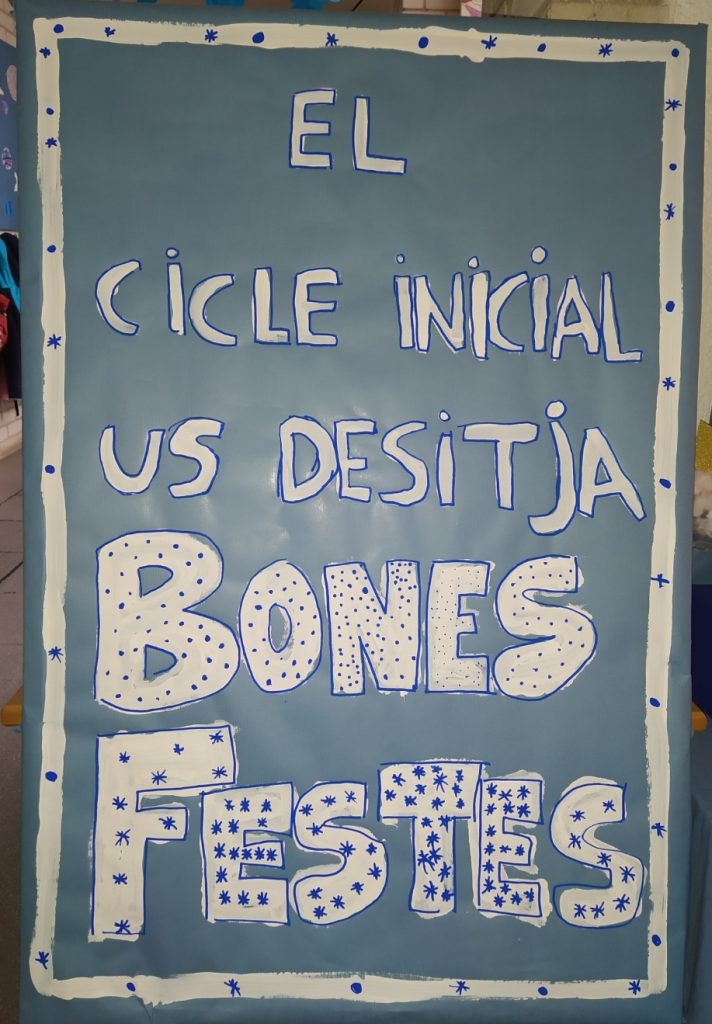 EL
CICLE INICIAL
US DESITJA
BONES
FESTES